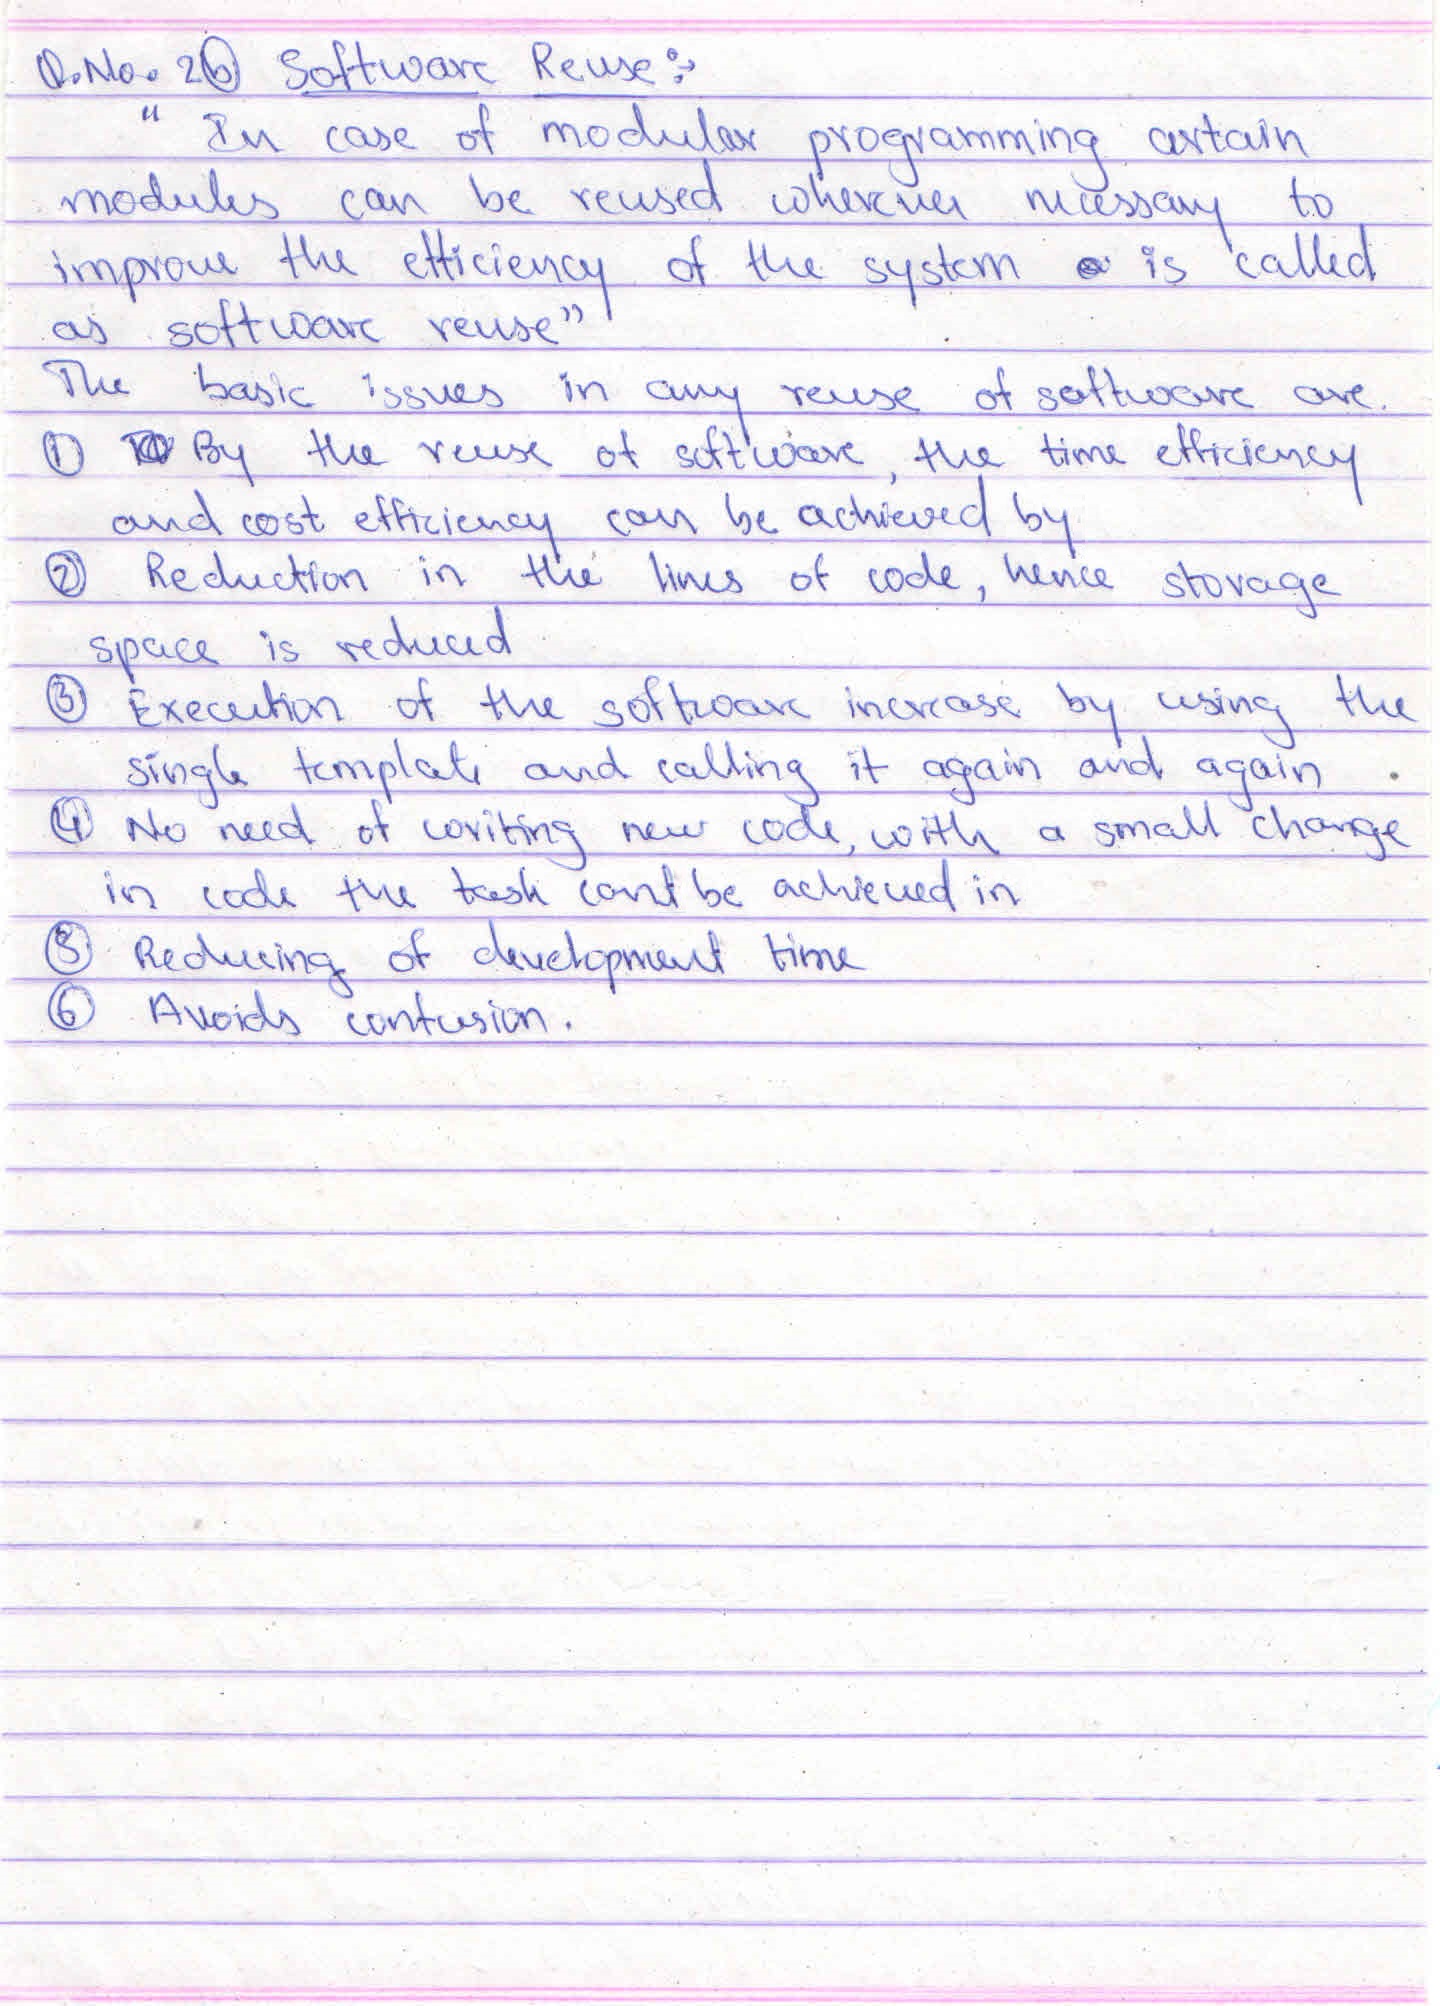 Q.No. 2(b) Software Reuse:-
" In case of modular programming certain
modules can be reused wherever necessary to
improve the efficiency of the system is called
as software reuse"
The basic issues in any reuse of software are.
① By the reuse of software, the time efficiency
and cost efficiency can be achieved by
② Reduction in the lines of code, hence storage
space is reduced
③ Execution of the software increase by using the
single template and calling it again and again .
④ No need of writing new code, with a small change
in code the task cant be achieved in
⑤ Reducing of development time
⑥ Avoids confusion.